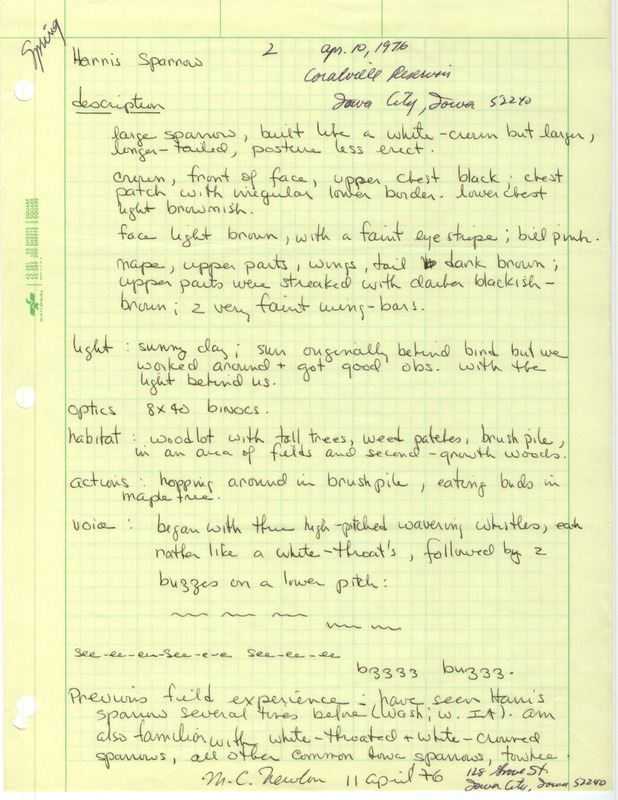 Spring
Harris Sparrow 2 apr. 10, 1976
Coralville Reservoir
Iowa City, Iowa 52240
description
large sparrow, built like a white-crown but larger,
longer-tailed, posture less erect.
crown, front of face, upper chest black; chest
patch with irregular lower border. lower chest
light brownish.
face light brown, with a faint eyestripe; bill pink.
nape, upper parts, wings, tail dark brown;
upper parts were streaked with darker blackish-
brown; 2 very faint wing-bars.
light: sunny day; sun originally behind bird but we
worked around + got good obs. with the
light behind us.
optics 8x40 binocs.
habitat: woodlot with tall trees, weed patches, brushpile,
in an area of fields and second-growth woods.
actions: hopping around in brushpile, eating buds in
maple tree.
voice: began with three high-pitched wavering whistles, each
rather like a white-throat's, followed by 2
buzzes on a lower pitch:
see-ee-ee-see-e-e see-ee-ee
bzzzz buzzz.
Previous field experience - have seen Harris
sparrow several times before (Wash; w. IA). am
also familiar with white-throated + white-crowned
sparrows, all other common Iowa sparrows, towhee.
M.C. Newlon 11 April 76 128 Grove St.
Iowa City, Iowa 52240